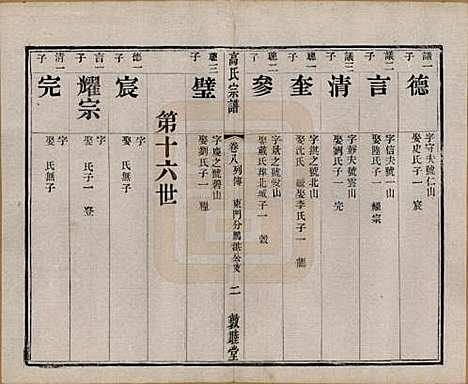 議一子
德
字守夫號仁山
娶史氏子一 宸
議二子
言
字信夫號一山
娶陸氏子一 耀宗
議三子
清
字靜夫號雲山
娶劉氏子一 完
聰一子
奎
字拱之號北山
娶沈氏 繼娶李氏子一 龍
聰二子
參
字敬之號悅山
娶戴氏 子一 嶽
高氏宗譜
卷八列傳 東門分鵬洪公支 二
敦睦堂
聰三子
璧
字慶之號碧山
娶劉氏子一 種
第十六世
德一子
宸
字
娶 氏子
言一子
耀宗
字
娶 氏子一 登
清一子
完
字
娶 氏無子